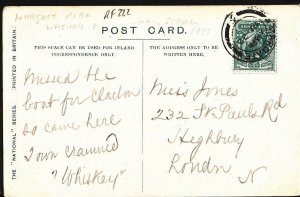 MARGATE PIER
RF 222
POST CARD.
THIS SPACE CAN BE USED FOR INLAND
CORRESPONDENCE ONLY.
THE ADDRESS ONLY TO BE
WRITTEN HERE.
THE "NATIONAL" SERIES.
(PRINTED IN BRITAIN.)
Missed the
boat for Clacton
so came here
Town crammed
"Whiskey"
Miss Jones
232 St Pauls Rd
Highbury
London
N